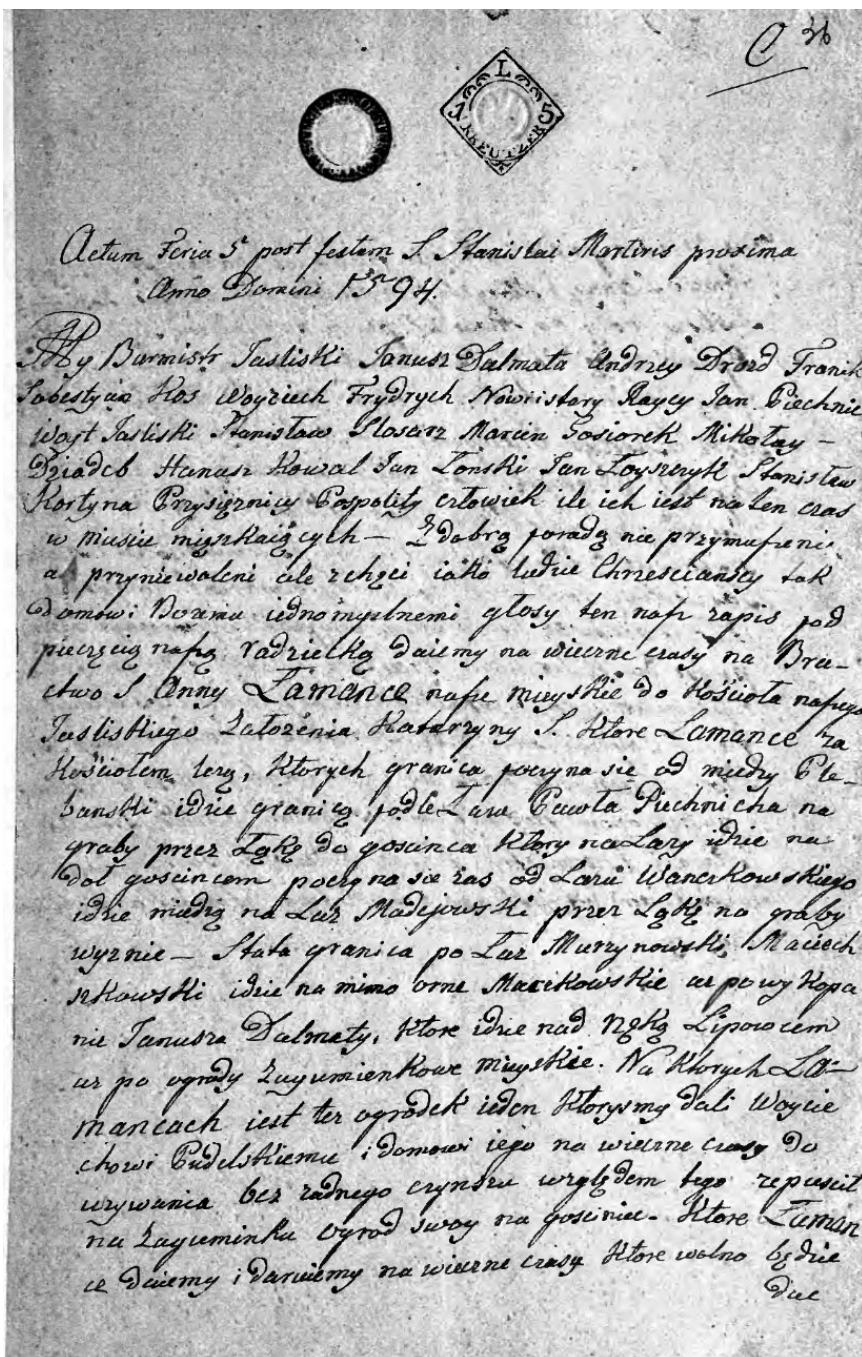 C 36
L
15
KREUTZER
Actum Feria 5 post festum S. Stanislai Martiris proxima
Anno Domini 1594.
My Burmistr Jasliski Janusz Dalmata Andrzey Drozd Franik
Sobestyan Kos Woyciech Frydrych Nowi i stary Raycy Jan Piechnic
Woyt Jasliski Stanisław Slosarz Marcin Gosiorek Mikołay –
Dziadcb Hanusz Kowal Jan Łonski Jan Łoyszczyk Stanisław
Kortyna Przysięznicy Pospolity człowiek ile ich iest na ten czas
w miescie mięszkaiących – Z dobrą poradą nie przymuszeni
a przyniewoleni ale z chęci iako ludzie Chrzescianscy tak
Domowi Bozemu iednomyslnemi głosy ten nasz zapis pod
pieczęcią naszą radziecką daiemy na wieczne czasy na Bra-
ctwo S Anny Łamance nasze mieyskie do Kościoła naszego
Jasliskiego Załozenia Katarzyny S. Ktore Łamance za
Kościołem lezą, Ktorych granica poczyna sie od miedzy Ple-
banski idzie granicą podle Łazu Pawła Piechnicha na
graby przez Łąkę do goscinca Ktory na Lazy idzie na
doł goscincem poczyna sie zas od Lazu Wanczkowskiego
idzie miedzą na Laz Madejowski przez Łąkę na graby
wyznie – Stała granica po Łaz Murzynowski, Maciech
szkowski idzie na mimo orne Macikowskie az po wykopa
nie Janusza Dalmaty, Ktore idzie nad rzęką Lipowcem
az po ogrody Zagumienkowe mieyskie. Na Ktorych Ła-
mancach iest tez ogrodek ieden Ktorysmy dali Woycie
chowi Pudelskiemu i domowi iego na wieczne czasy do
uzywania bez zadnego czynszu względem tego ze puscił
na Zaguminku ogrod swoy na gosciniec. Ktore Łaman
ce daiemy i daruiemy na wieczne czasy Ktore wolno będzie
dac